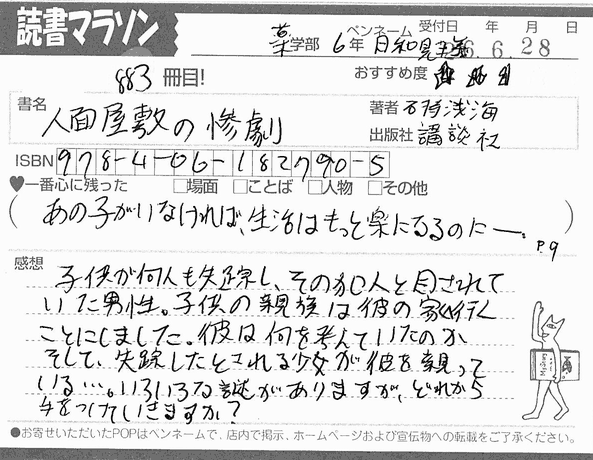 読書マラソン
薬学部 6年 ペンネーム 日和見主義 受付日 年 月 日
6.6.28
883冊目! おすすめ度
書名 人面屋敷の惨劇
著者 石持浅海
出版社 講談社
ISBN 978-4-06-182790-5
♥一番心に残った □場面 □ことば □人物 □その他
(あの子がいなければ、生活はもっと楽になるのにー。P9)
感想
子供が何人も失踪し、その犯人と目されて
いた男性。子供の親族は彼の家へ行く
ことにしました。彼は何を考えていたのか
そして、失踪したとされる少女が彼を親って
いる…。いろいろな謎がありますが、どれから
手をつけていきますか?
●お寄せいただいたPOPはペンネームで、店内で掲示、ホームページおよび宣伝物への転載をご了承ください。